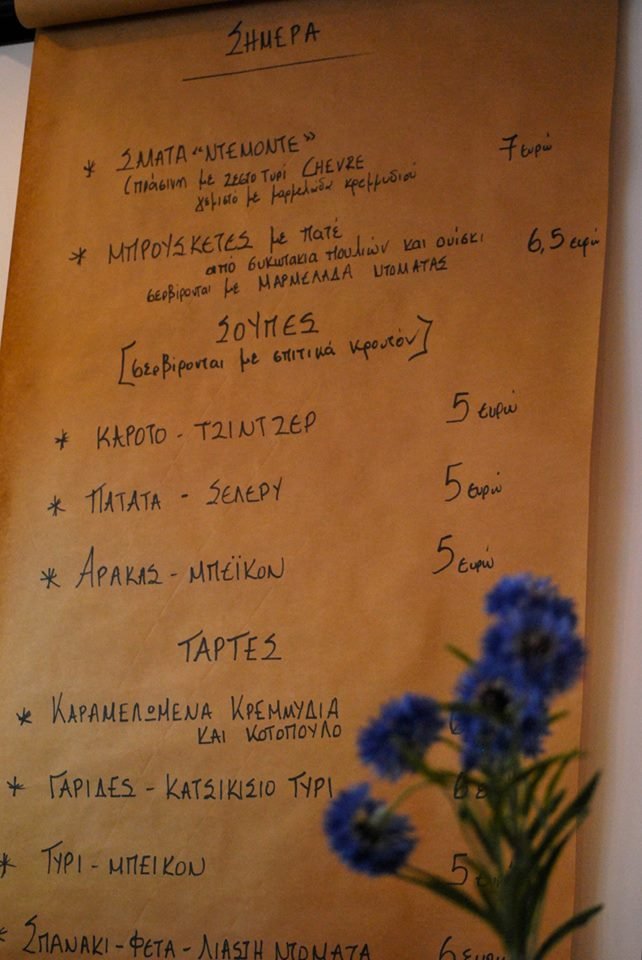 ΣΗΜΕΡΑ
* ΣΜΑΤΑ "ΝΤΕΜΟΝΤΕ" 7 ευρώ
(πράσινη με ζεστο τυρί CHEVRE
γεμιστο με μαρμελάδα κρεμμυδιού
* ΜΠΡΟΥΣΚΕΤΕΣ με πατέ 6,5 ευρώ
από συκωτακια πουλιών και ουίσκι
σερβίρονται με ΜΑΡΜΕΛΑΔΑ ΝΤΟΜΑΤΑΣ
ΣΟΥΠΕΣ
[σερβίρονται με σπιτικά κρουτόν]
* ΚΑΡΟΤΟ - ΤΖΙΝΤΖΕΡ 5 ευρώ
* ΠΑΤΑΤΑ - ΣΕΛΕΡΥ 5 ευρώ
* ΑΡΑΚΑΣ - ΜΠΕΪΚΟΝ 5 ευρώ
ΤΑΡΤΕΣ
* ΚΑΡΑΜΕΛΩΜΕΝΑ ΚΡΕΜΜΥΔΙΑ
ΚΑΙ ΚΟΤΟΠΟΥΛΟ
* ΓΑΡΙΔΕΣ - ΚΑΤΣΙΚΙΣΙΟ ΤΥΡΙ 6
* ΤΥΡΙ - ΜΠΕΙΚΟΝ 5
* ΣΠΑΝΑΚΙ - ΦΕΤΑ - ΛΙΑΣΤΗ ΝΤΟΜΑΤΑ 6 ευρώ